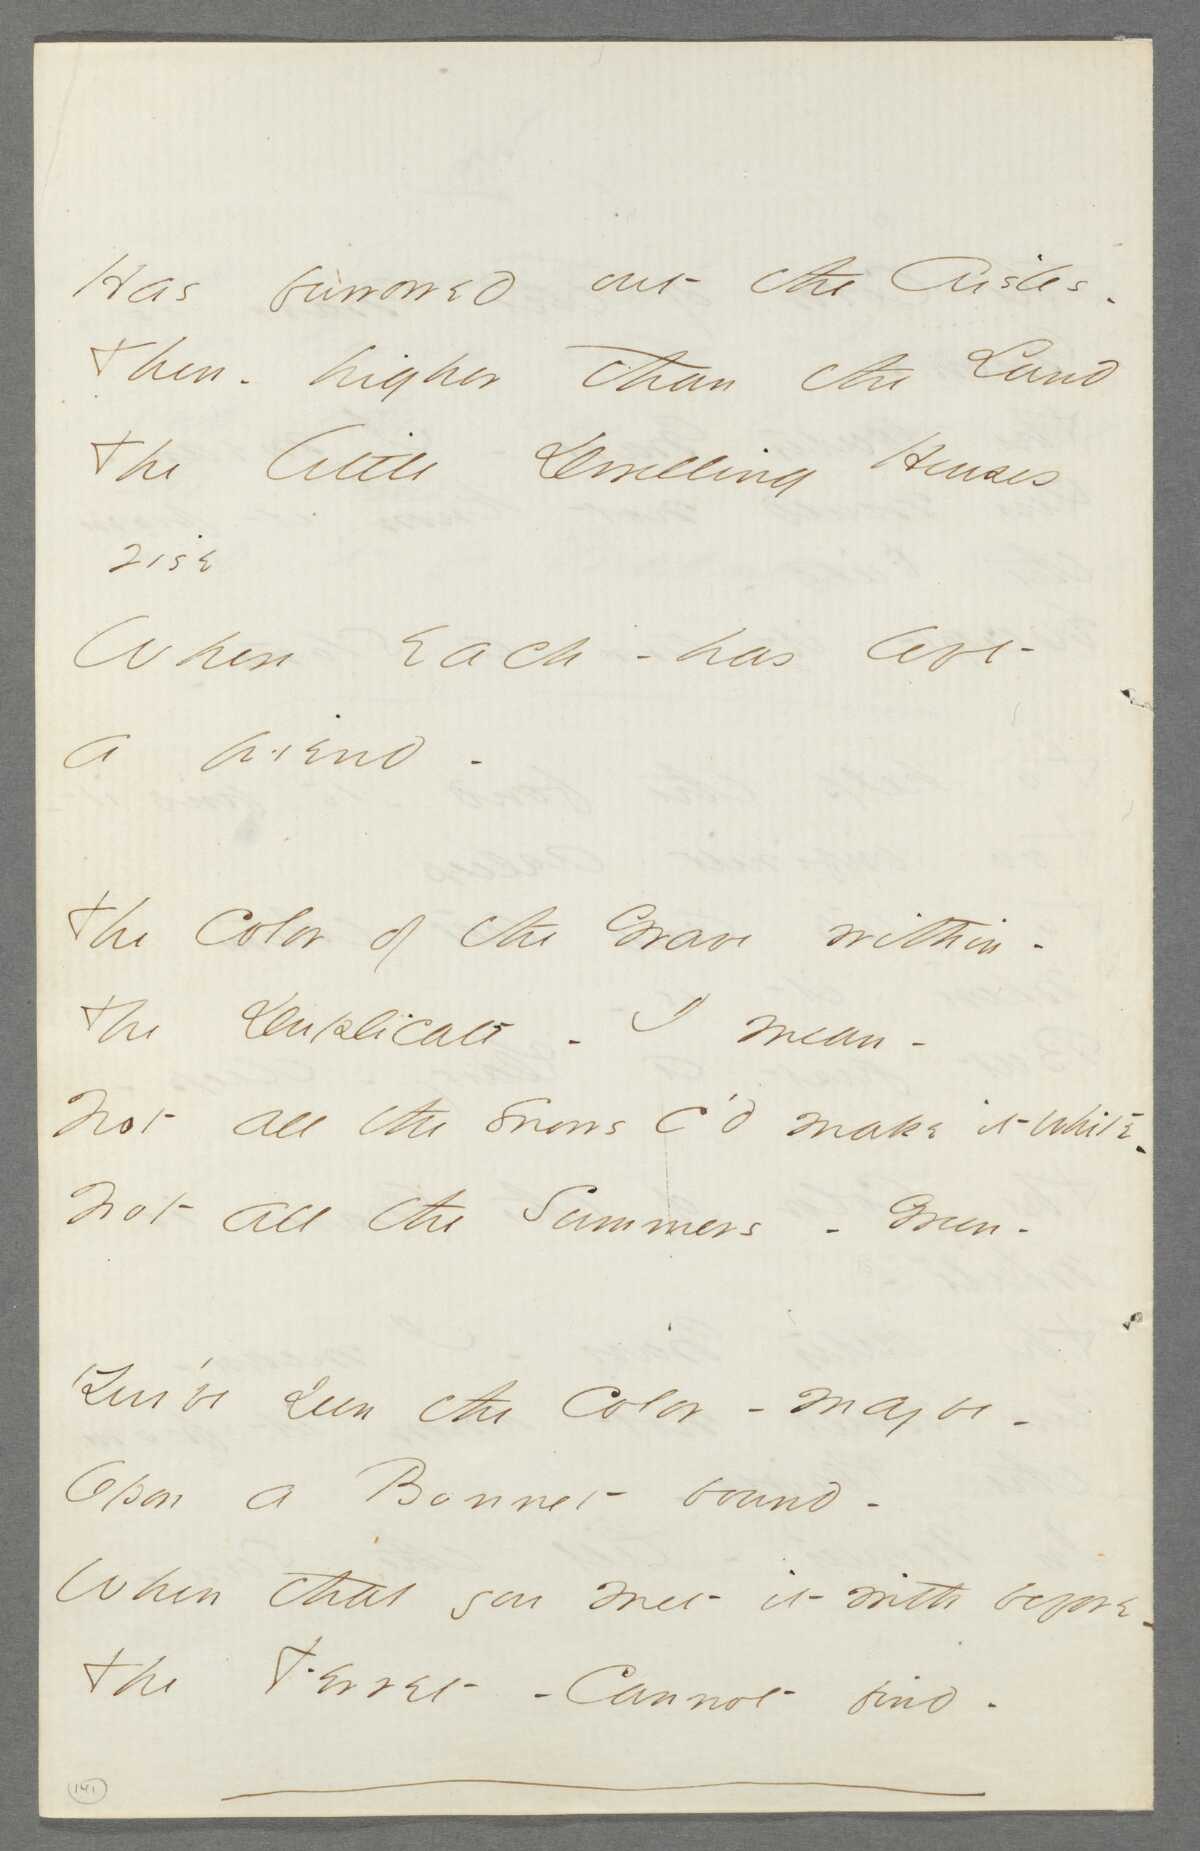 Has furrowed out the Aisles -
Then - higher than the Land
The little Dwelling Houses
rise
Where Each - has left
a friend -
The Color of the Grave within -
The Duplicate - I mean -
Not all the Snows c'd make it White -
Not all the Summers - Green -
You've seen the Color - maybe -
Upon a Bonnet bound -
When that you met it with before -
The Ferret - Cannot find -
141